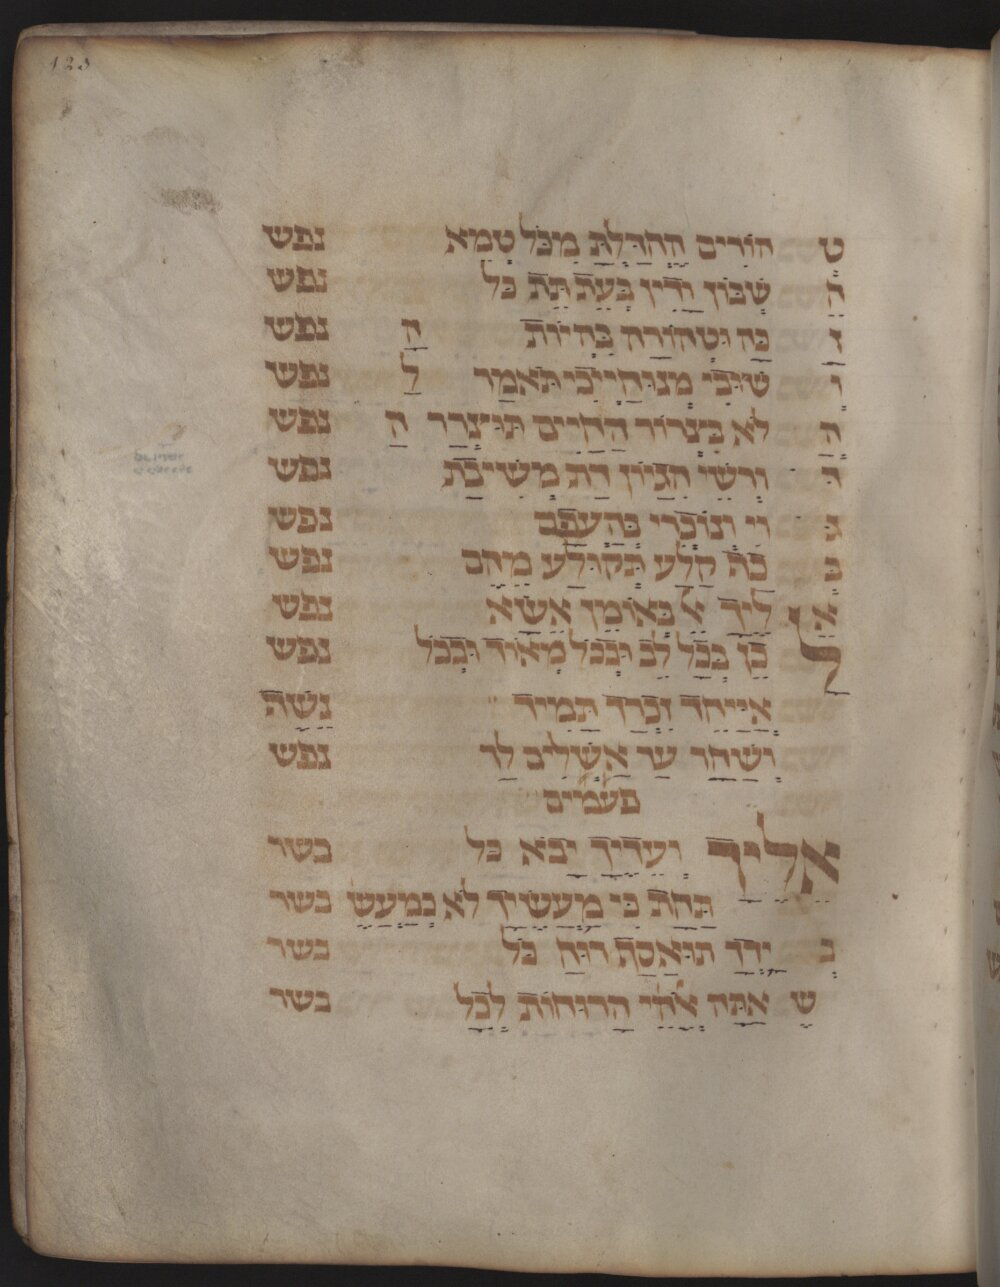 123
ט הוֹרִים הִבְדַּלְתָּ מִכָּל טָמֵא נפש
הָ שְׁבּוֹן וְדִין בְּעֵת תֵּת כל נפש
זַ כָּה וּטְהוֹרָה בִּהְיוֹת הַ נפש
וְ שׁוּבִי מְנוּחָיְיכִי תֹּאמַר לַ נפש
הָ לֹא בִּצְרוֹר הַחַיִּים תּוּצְרַר הַ נפש
דּ וְרְשֵׁי הִגָּיוֹן דַּת מְשִׁיבַת נפש
גּ נפש
בְּ כַּף קֶלַע תְּקוּלַּע מֵהֶם נפש
אֵ לֶיךָ אֵל בְּאוֹמֶן אֶשָּׂא נפש
לָ כֵן בְּכָל לֵב וּבְכָל מְאוֹד וּבְכָל נפש
אֲיַיחֵד זִכְרְךָ תָּמִיד נֶשֶׁה
וְשַׁחַר עַד אַשְׁלִים לָךְ נפש
פעמים
אֵלֶיךָ וְעָדֶיךָ יָבֹא כל בשר
תַּחַת כִּי מַעֲשֶׂיךָ לֹא כְמַעֲשֵׂ בשר
בְּ יָדְךָ תּוּאֲסַף רוּחַ כל בשר
שֶׁ אַתָּה אֱלֹהֵי הָרוּחוֹת לְכָל בשר